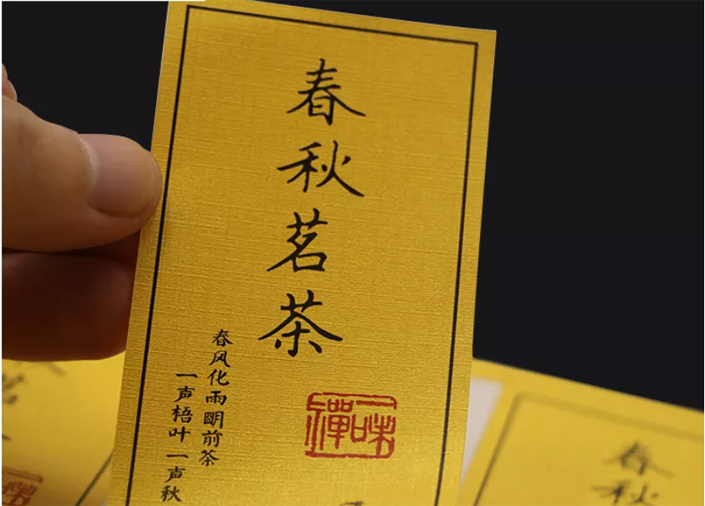 春秋茗茶
春风化雨明前茶
一声梧叶一声秋
一味禅
春秋